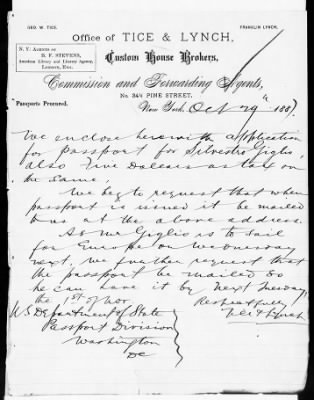 GEO. W. TICE.
FRANKLIN LYNCH.
Office of TICE & LYNCH,
N. Y. AGENTS OF
B. F. STEVENS,
American Library and Literary Agency,
LONDON, ENG.
Custom House Brokers,
Commission and Forwarding Agents,
No. 34½ PINE STREET,
Passports Procured.
New York, Oct 29th 1887.
We enclose herewith application
for passport for Silvestro Giglio,
also Five Dollars as tax on
the same.
We beg to request that when
passport is issued it be mailed
to us at the above address.
As Mr Giglio is to sail
for Europe on Wednesday
next, we further request that
the passport be mailed so
he can have it by next Tuesday
the 1st of Nov.
Respectfully
Tice & Lynch
U.S. Department of State
Passport Division
Washington
DC